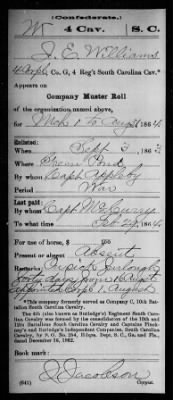 (Confederate.)
W 4 Cav. S. C.
J. E. Williams
4 Corpl, Co. G, 4 Reg't South Carolina Cav.*
Appears on
Company Muster Roll
of the organization named above,
for Mch 1 to Aug 31, 1864.
Enlisted:
When Sept 3, 186
Where Green Pond
By whom Capt Appleby
Period War
Last paid:
By whom Capt
To what time 1864.
For use of horse, $
Present or absent Absent
Remarks: furlough
days from
Appointed Corp'l August
*This company formerly served as Company C, 10th Battalion South Carolina Cavalry.
The 4th (also known as Rutledge's) Regiment South Carolina Cavalry was formed by the consolidation of the 10th and 12th Battalions South Carolina Cavalry and Captains Pinckney's and Rutledge's Independent Companies, South Carolina Cavalry, by S. O. No. Hdqrs. Dept. S. C., Ga. and Fla., dated December 16, 1862.
Book mark:
J. Jacobson
(641) Copyist.